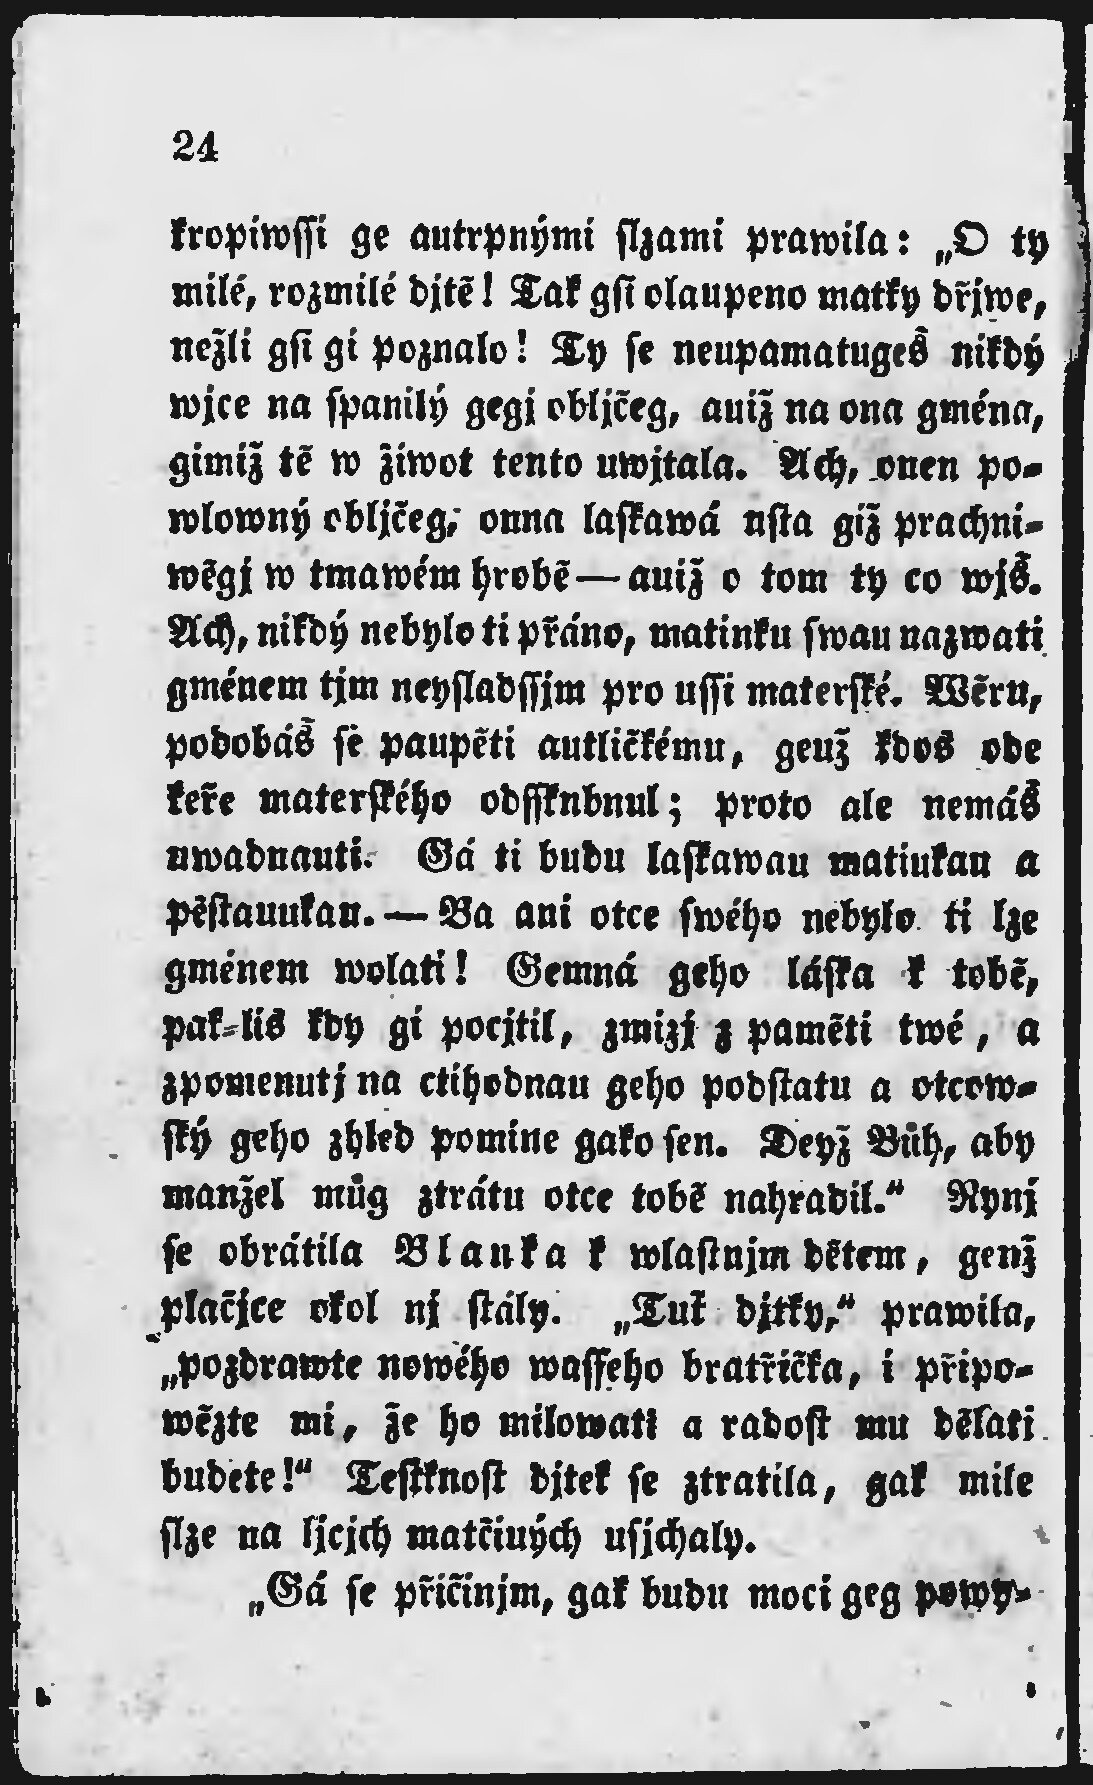 24
kropiwſſi ge autrpnými ſlzami prawila: „O ty
milé, rozmilé djtě! Tak gſi olaupeno matky dřjwe,
nežli gſi gi poznalo! Ty ſe neupamatugeš nikdý
wjce na ſpanilý gegj obljčeg, aniž na ona gména,
gimiž tě w život tento uwjtala. Ach, onen po-
wlowný obljčeg, onna laſkawá uſta giž prachni-
wěgj w tmawém hrobě — aniž o tom ty co wjš.
Ach, nikdý nebylo ti přáno, matinku ſwau nazwati
gménem tjm neyſladſſjm pro uſſi materſké. Wěru,
podobáš ſe paupěti autličkému, genž kdos ode
keře materſkého odſſknbnul; proto ale nemáš
uwadnauti. Gá ti budu laſkawau matinkau a
pěſtaunkau. — Ba ani otce ſwého nebylo ti lze
gménem wolati! Gemná geho láſka k tobě,
pak-lis kdy gi pocjtil, zmizj z paměti twé, a
zpomenutj na ctihodnau geho podſtatu a otcow-
ſký geho zhled pomine gako ſen. Deyž Bůh, aby
manžel můg ztrátu otce tobě nahradil.“ Nynj
ſe obrátila Blanka k wlaſtnjm dětem, genž
plačjce okol nj ſtály. „Tuť djtky,“ prawila,
„pozdrawte nowého waſſeho bratřička, i připo-
wězte mi, že ho milowati a radoſt mu dělati
budete!“ Teſtknoſt djtek ſe ztratila, gak mile
ſlze na ljcjch matčiných uſjchaly.
„Gá ſe přičinjm, gak budu moci geg powy-